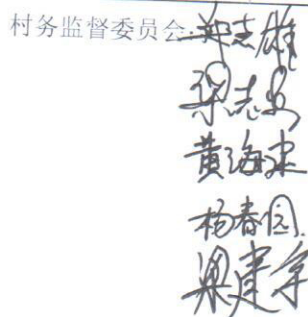 村务监督委员会:郑志雄
梁志
黄海
杨春园
梁建